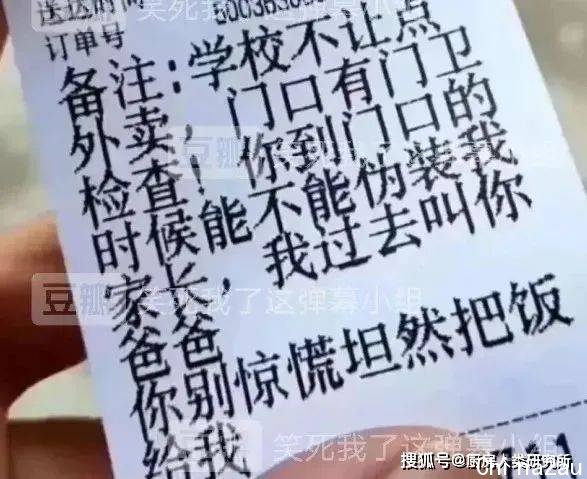 送达时间
订单号
500363
备注：学校不让点
外卖，门口有门卫
检查！你到门口的
时候能不能伪装我
家长，我过去叫你
爸爸
你别惊慌坦然把饭
给我
豆瓣 笑死我了这弹幕小组
豆瓣 笑死我了这弹幕小组
豆瓣 笑死我了这弹幕小组
搜狐号@厨房人类研究所